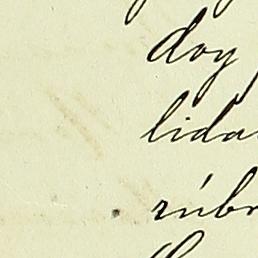 doy
lida
rúbr